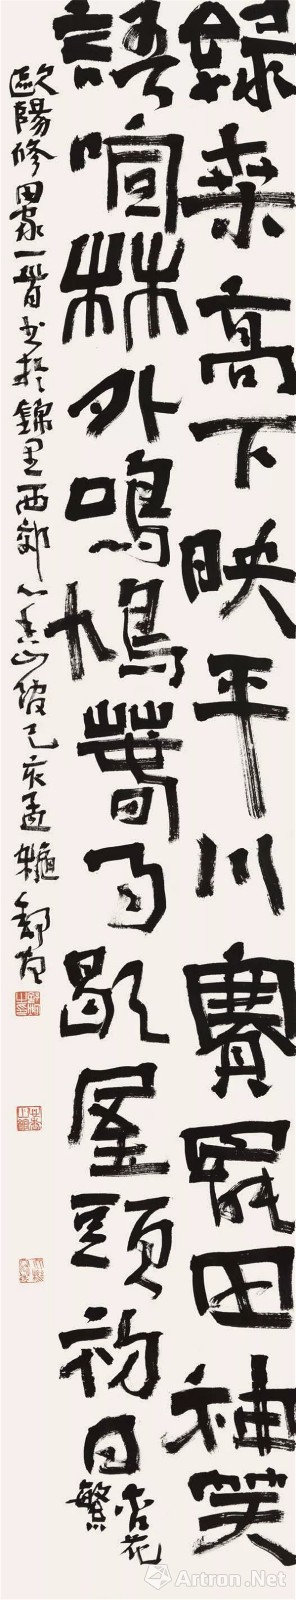 綠桒高下映平川賽罷田神笑
語喧林外鳴鳩萅雨歇屋頭初日杏花繁
歐陽修田家一首书於錦里西郊 山 己亥孟龝
Artron.Net